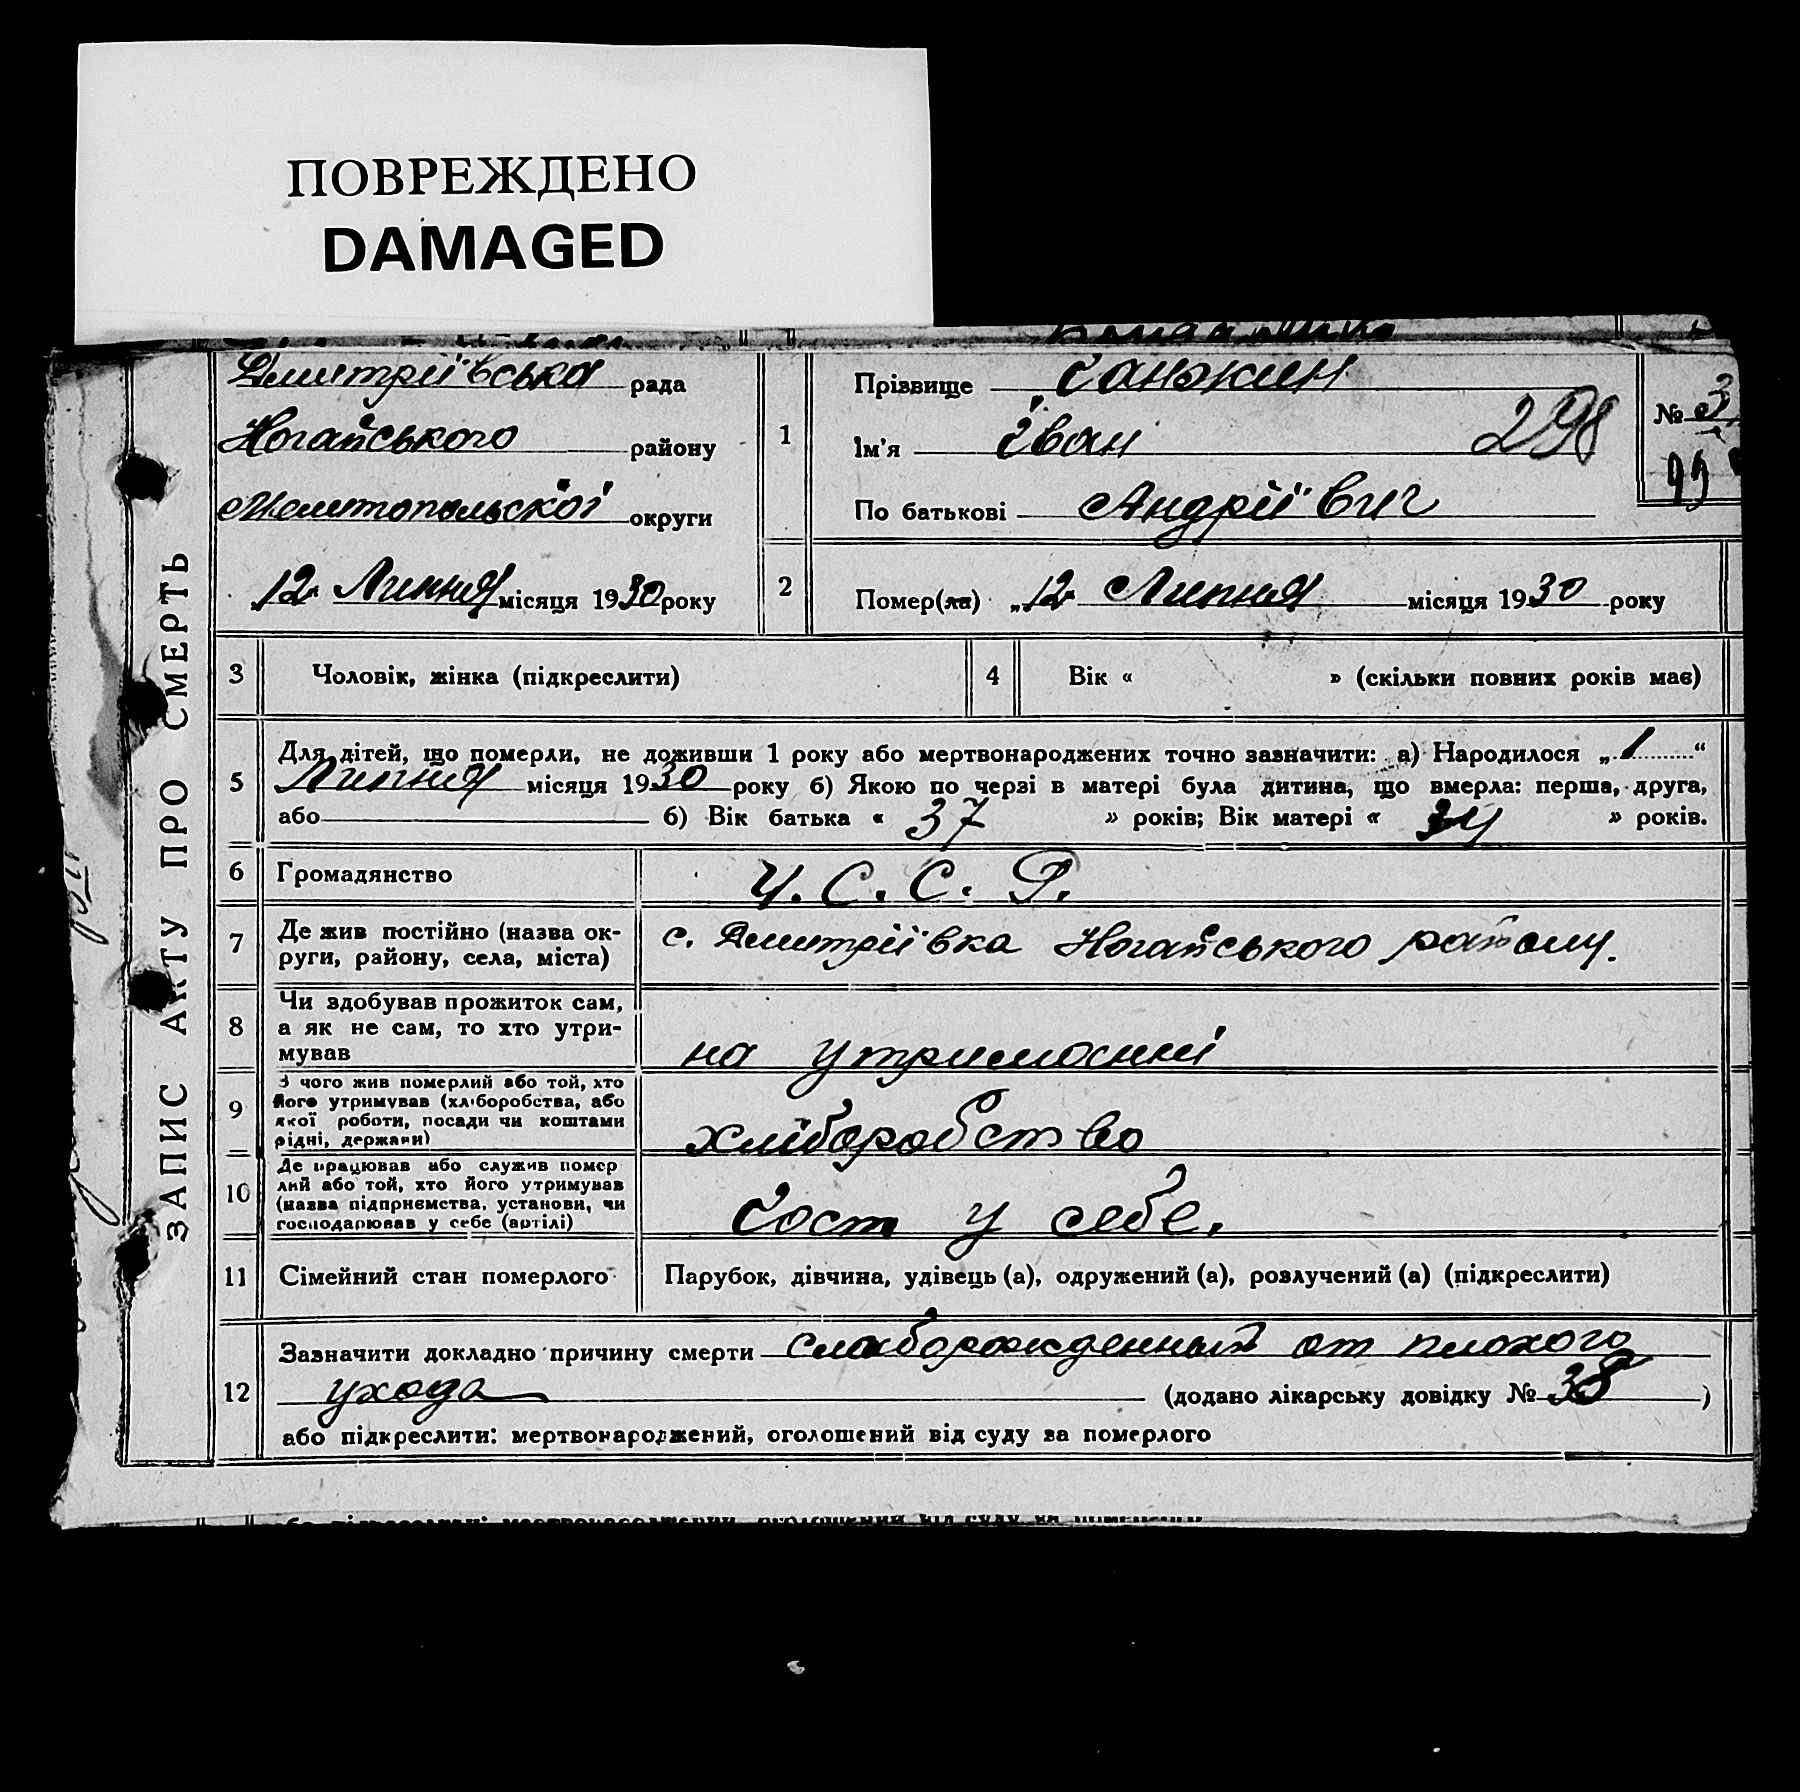 ПОВРЕЖДЕНО
DAMAGED
ЗАПИС АКТУ ПРО СМЕРТЬ
Дмитріївська рада
Ногайського району
Мелитопольскої округи
12 Липня місяця 1930 року
1
Прізвище
Ім'я Іван 298
По батькові Андріївич
№
2
Помер(ла) „12 Липня місяця 1930 року
3 Чоловік, жінка (підкреслити)
4 Вік « » (скільки повних років має)
5
Для дітей, що померли, не доживши 1 року або мертвонароджених точно зазначити: а) Народилося „1“
Липня місяця 1930 року б) Якою по черзі в матері була дитина, що вмерла: перша, друга,
або б) Вік батька « 37 » років; Вік матері « 34 » років.
6 Громадянство У. С. С. Р.
7
Де жив постійно (назва ок-
руги, району, села, міста)
с. Дмитріївка Ногайського району.
8
Чи здобував прожиток сам,
а як не сам, то хто утри-
мував
на утриманні
9
З чого жив померлий або той, хто
його утримував (хліборобства, або
якої роботи, посади чи коштами
рідні, держави)
хліборобство
10
Де працював або служив помер
лий або той, хто його утримував
(назва підприємства, установи, чи
господарював у себе (артілі)
Гост у себе.
11 Сімейний стан померлого Парубок, дівчина, удівець (а), одружений (а), розлучений (а) (підкреслити)
12
Зазначити докладно причину смерти слаборожденный от плохого
ухода (додано лікарську довідку № 38 )
або підкреслити: мертвонароджений, оголошений від суду за померлого